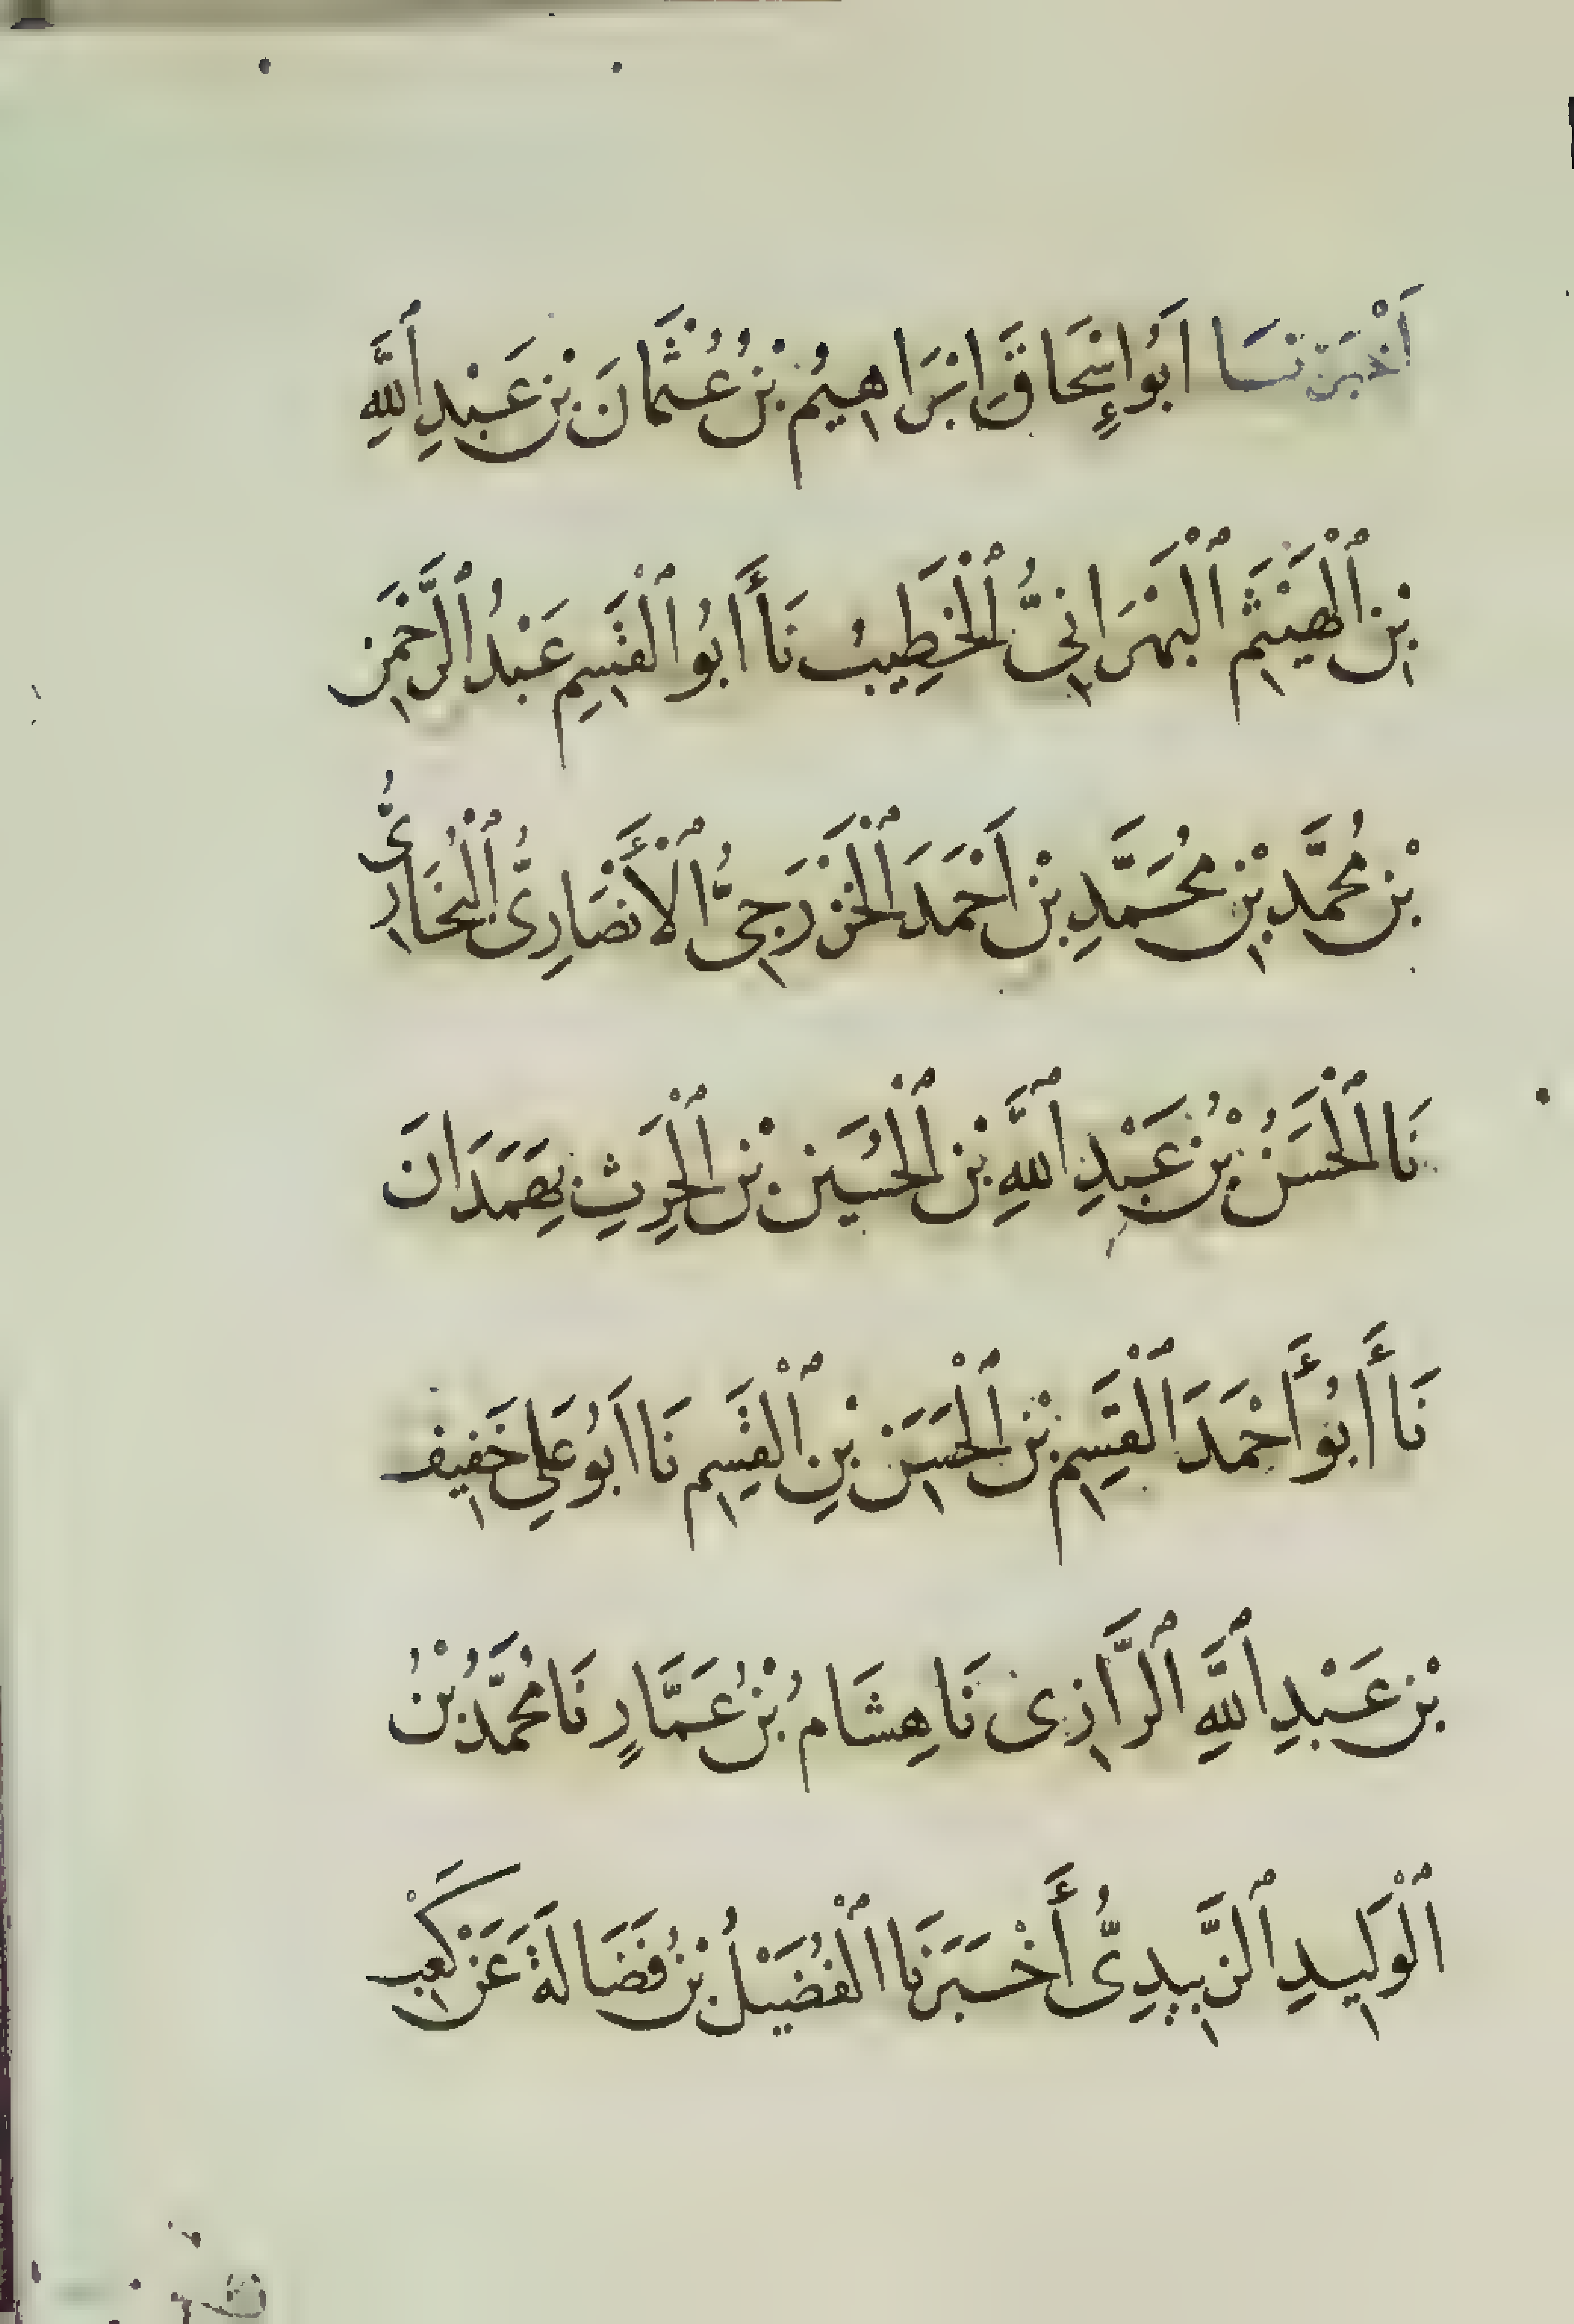 أَخْبَرَنَا أَبُو إِسْحَاقَ إِبْرَاهِيمُ بْنُ عُثْمَانَ بْنِ عَبْدِ ٱللَّهِ
بْنِ ٱلْهَيْثَمِ ٱلْبَهْرَانِيُّ ٱلْخَطِيبُ نَا أَبُو ٱلْقَٰسِمِ عَبْدُ ٱلرَّحْمَٰنِ
بْنِ مُحَمَّدِ بْنِ مُحَمَّدِ بْنِ أَحْمَدَ ٱلْخَزْرَجِىُّ ٱلْأَنْصَارِىُّ ٱلْبُخَارِىُّ
نَا ٱلْحَسَنُ بْنُ عَبْدِ ٱللَّهِ بْنِ ٱلْحُسَيْنِ بْنِ ٱلْحَرِثِ بِهَمَدَانَ
نَا أَبُو أَحْمَدَ ٱلْقَٰسِمِ بْنِ ٱلْحَسَنِ بْنِ ٱلْقَٰسِمِ نَا أَبُو عَلِي خَفِيف
بْنِ عَبْدِ ٱللَّهِ ٱلرَّازِى نَا هِشَامُ بْنُ عَمَّارٍ نَا مُحَمَّدُ بْنُ
ٱلْوَلِيدِ ٱلزَّبِيدِىُّ أَخْبَرَنَا ٱلْفُضَيْلُ بْنُ فَضَالَةَ عَنْ كَعْبِ